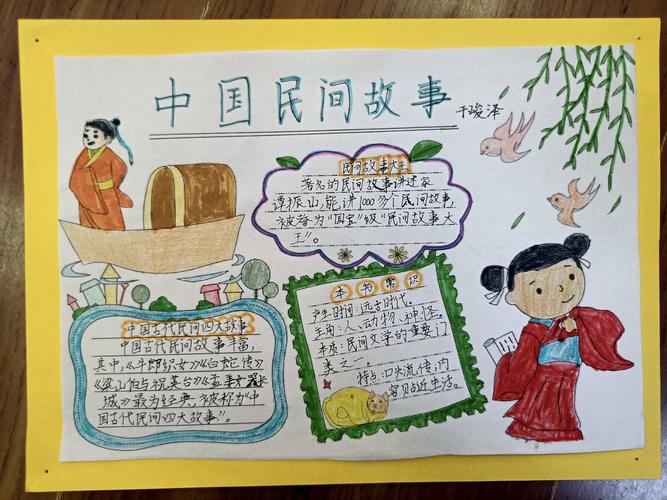 中国民间故事
于峻泽
民间故事大王
著名的民间故事讲述家
谭振山,能讲1000多个民间故事,
被誉为"国宝"级"民间故事大
王"。
中国古代民间四大故事
中国古代民间故事丰富,
其中,《牛郎织女》《白蛇传》
《梁山伯与祝英台》《孟姜女哭长
城》最为经典,被称为"中
国古代民间四大故事"。
本书常识
产生时间:远古时代。
主角:人、动物、神怪。
本质:民间文学的重要门
类之一。
特点:口头流传,内
容贝占近生活。